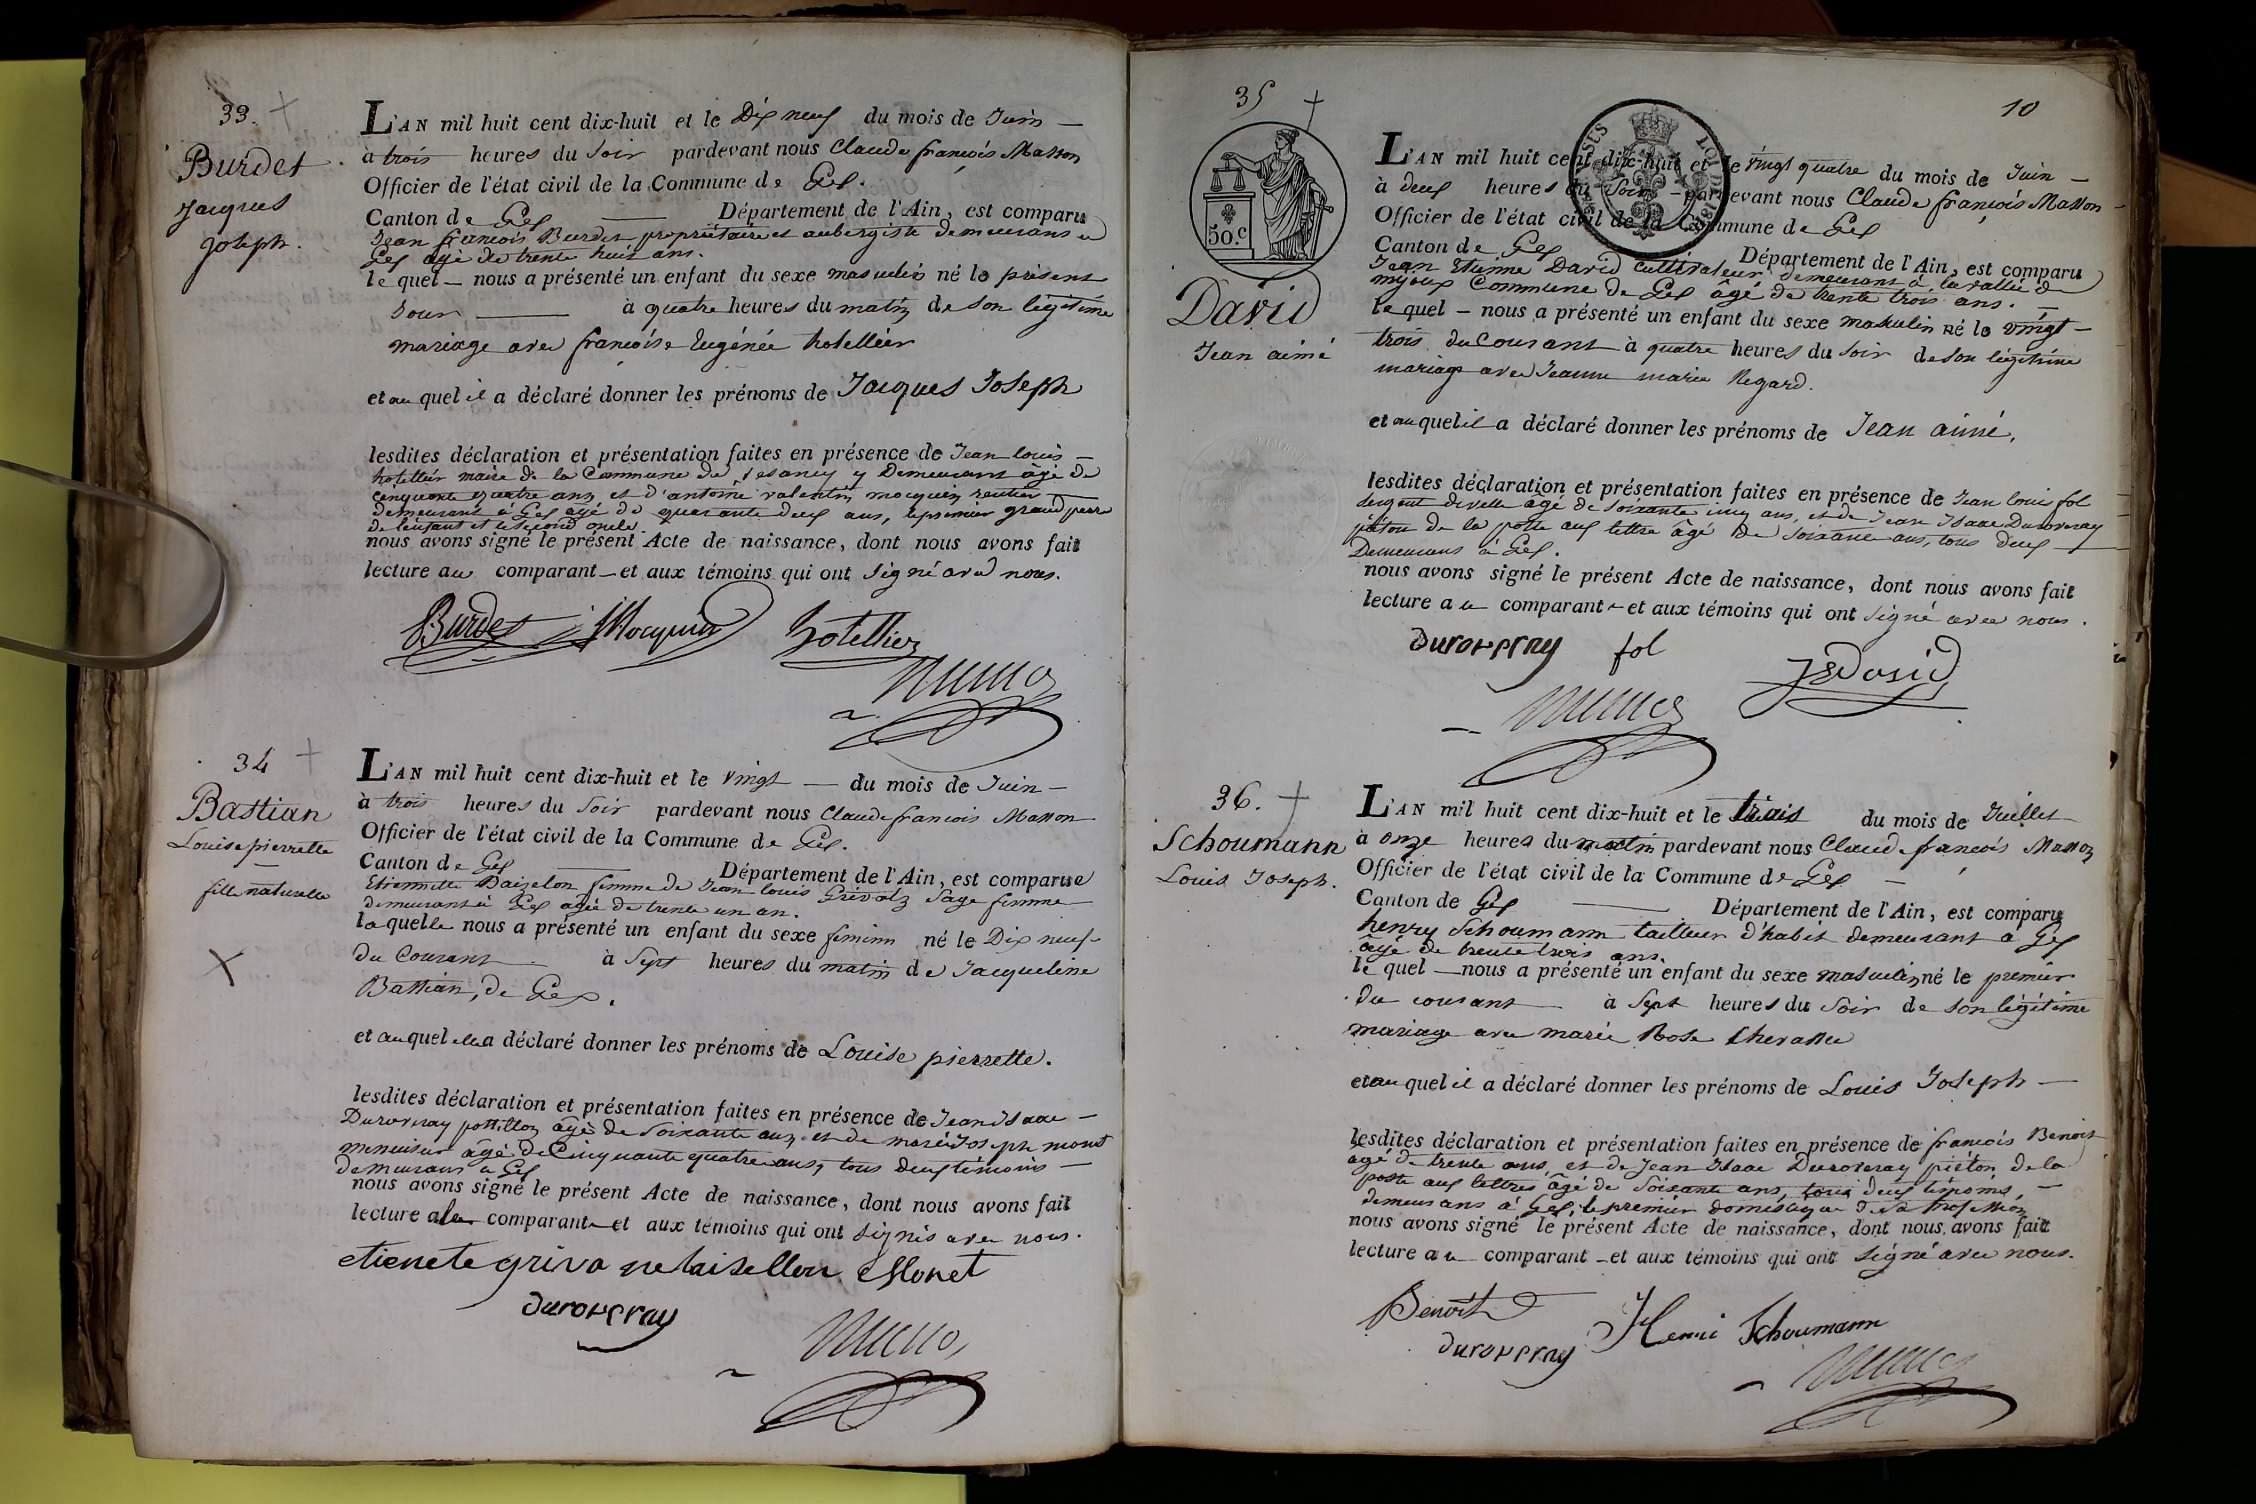 33.
Burdet
Jacques
Joseph.
L'AN mil huit cent dix-huit et le Dix neuf du mois de Juin —
à trois heures du Soir pardevant nous Claude françois Masson
Officier de l'état civil de la Commune de Gex.
Canton de Gex — Département de l'Ain, est comparu
Jean françois Burdet propriétaire et aubergiste demeurant a
Gex agé de trente huit ans.
le quel — nous a présenté un enfant du sexe masculin né le présent
Jour — à quatre heures du matin de son légitime
mariage avec françoise Eugénée hotellier
et au quel il a déclaré donner les prénoms de Jacques Joseph
lesdites déclaration et présentation faites en présence de Jean louis —
hotellier maire de la Commune de Vesancy y Demeurant âgé de
Cinquante quatre ans et d'antoine valentin mocquin rentier
demeurant à Gex agé de quarante deux ans, le premier grand pere
de l'enfant et le second oncle.
nous avons signé le présent Acte de naissance, dont nous avons fait
lecture au comparant — et aux témoins qui ont signé avec nous.
Burdet Mocquin hotellier
34
Bastian
Louise pierrette
fille naturelle
L'AN mil huit cent dix-huit et le vingt — du mois de Juin —
à trois heures du Soir pardevant nous Claude françois Masson
Officier de l'état civil de la Commune de Gex.
Canton de Gex — Département de l'Ain, est comparue
Etiennette Baizelon femme de Jean louis Grivatz Sage femme
demeurant à Gex agée de trente un an.
la quelle nous a présenté un enfant du sexe feminin né le Dix neuf
du Courant — à Sept heures du matin de Jacqueline
Bastian, de Gex.
et au quel elle a déclaré donner les prénoms de Louise pierrette.
lesdites déclaration et présentation faites en présence de Jean Isaac —
Duroveray postillon âgé de Soixante ans et de marie Joseph monet
menuisier âgé de Cinquante quatre ans, tous deux témoins —
demeurans a Gex
nous avons signé le présent Acte de naissance, dont nous avons fait
lecture a la comparante et aux témoins qui ont signés avec nous.
etienete griva ne baisellon Monet
duroveray
35
10
50.c
LOI DE 1816
David
Jean aimé
L'AN mil huit cent dix-huit et le vingt quatre du mois de Juin —
à deux heures du Soir — pardevant nous Claude françois Masson
Officier de l'état civil de la Commune de Gex
Canton de Gex Département de l'Ain, est comparu
Jean Etienne David cultivateur demeurant à la vallée de
mijoux Commune de Gex âgé de trente trois ans. —
le quel — nous a présenté un enfant du sexe maskulin né le vingt —
trois du Courant à quatre heures du soir de son légitime
mariage avec Jeanne marie Regard.
et au quel il a déclaré donner les prénoms de Jean aimé,
lesdites déclaration et présentation faites en présence de Jean louis fol
sergent de ville âgé de Soixante cinq ans, et de Jean Isaac Duroveray
piéton de la poste aux lettre âgé de soixante ans, tous deux
Demeurans à Gex.
nous avons signé le présent Acte de naissance, dont nous avons fait
lecture au comparant — et aux témoins qui ont signé avec nous.
duroveray fol JEDavid
36.
Schoumann
Louis Joseph.
L'AN mil huit cent dix-huit et le trois du mois de Juillet
à onze heures du matin pardevant nous Claude françois Masson
Officier de l'état civil de la Commune de Gex —
Canton de Gex — Département de l'Ain, est comparu
henry Schoumann tailleur d'habit demeurant à Gex
âgé de trente trois ans.
le quel — nous a présenté un enfant du sexe masculin né le premier
du courant — à Sept heures du Soir de son légitime
mariage avec marie Rose Chevallu
et au quel il a déclaré donner les prénoms de Louis Joseph —
lesdites déclaration et présentation faites en présence de françois Benoit
agé de trente ans, et de Jean Isaac Duroveray piéton de la
poste aux lettres âgé de Soixante ans, tous deux témoins, —
demeurans à Gex, le premier domestique de sa profession
nous avons signé le présent Acte de naissance, dont nous avons fait
lecture au comparant — et aux témoins qui ont signé avec nous.
Benoit Henri Schoumann
duroveray